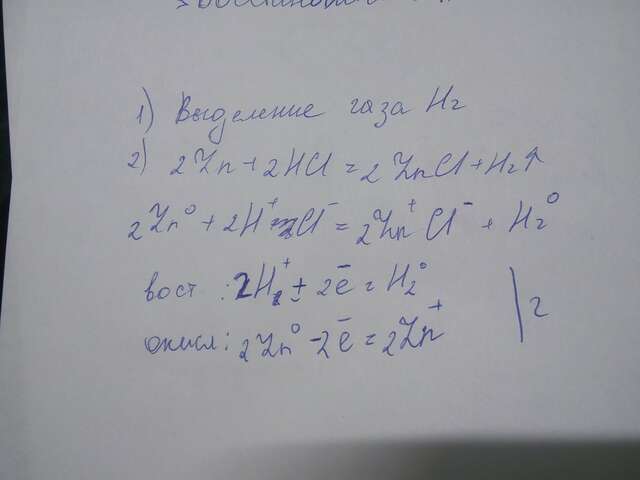 1) Выделение газа H₂
2) 2Zn + 2HCl = 2ZnCl + H₂↑
2Zn⁰ + 2H⁺Cl⁻ = 2Zn⁺Cl⁻ + H₂⁰
вост : 2H⁺ + 2ē = H₂⁰
окисл : 2Zn⁰ - 2ē = 2Zn⁺ | 2